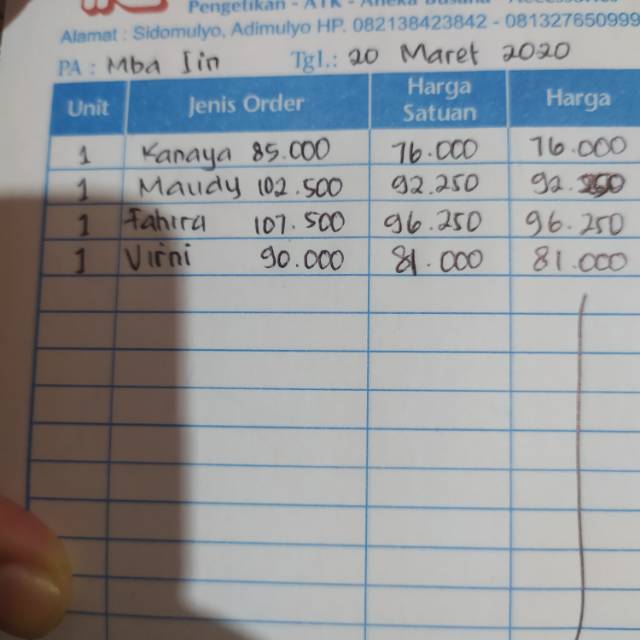 Pengetikan - ATK - Aneka Busana - Accessories
Alamat : Sidomulyo, Adimulyo HP. 082138423842 - 081327650999
PA : Mba Iin Tgl.: 20 Maret 2020
Unit Jenis Order Harga Satuan Harga
1 Kanaya 85.000 76.000 76.000
1 Maudy 102.500 92.250 92.250
1 Fahira 107.500 96.250 96.250
1 Virni 90.000 81.000 81.000